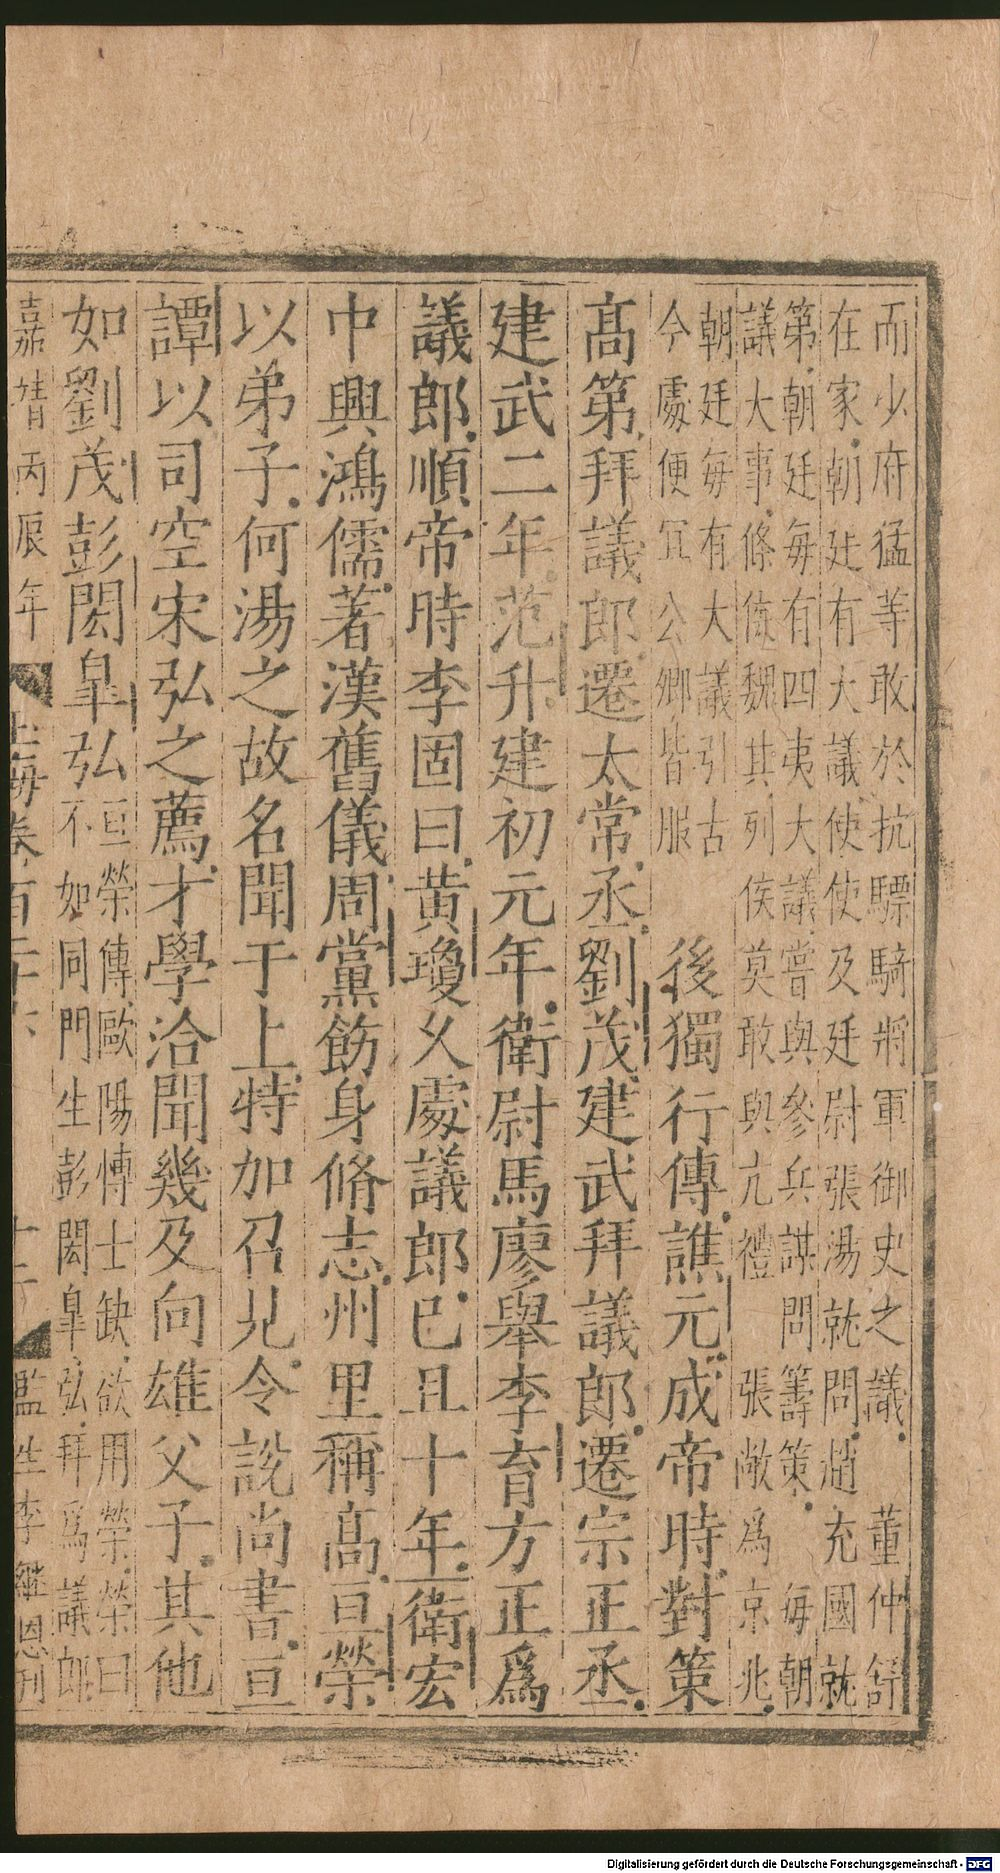 而少府猛等敢於抗驃騎將軍御史之議董仲舒
在家朝廷有大議使使及廷尉張湯就問趙充國就
第朝廷每有四夷大議嘗與參兵謀問籌策每朝
議大事條依魏其列侯莫敢與亢禮張敞爲京兆
朝廷每有大議引古
今處便宜公卿皆服
後獨行傳譙元成帝時對策
高第拜議郎遷太常丞劉茂建武拜議郎遷宗正丞
建武二年范升建初元年衛尉馬廖舉李育方正爲
議郎順帝時李固曰黃瓊乆處議郎已且十年衛宏
中興鴻儒著漢舊儀周黨飭身脩志州里稱高亘榮
以弟子何湯之故名聞于上特加召見令説尚書亘
譚以司空宋弘之薦才學洽聞幾及向雄父子其他
如劉茂彭閎皐弘
亘榮傳歐陽愽士缺欲用榮榮曰
不如同門生彭閎皐弘拜爲議郎
嘉靖丙辰年
玉海卷百二十六
十二
監生李繼恩刋
Digitalisierung gefördert durch die Deutsche Forschungsgemeinschaft - DFG